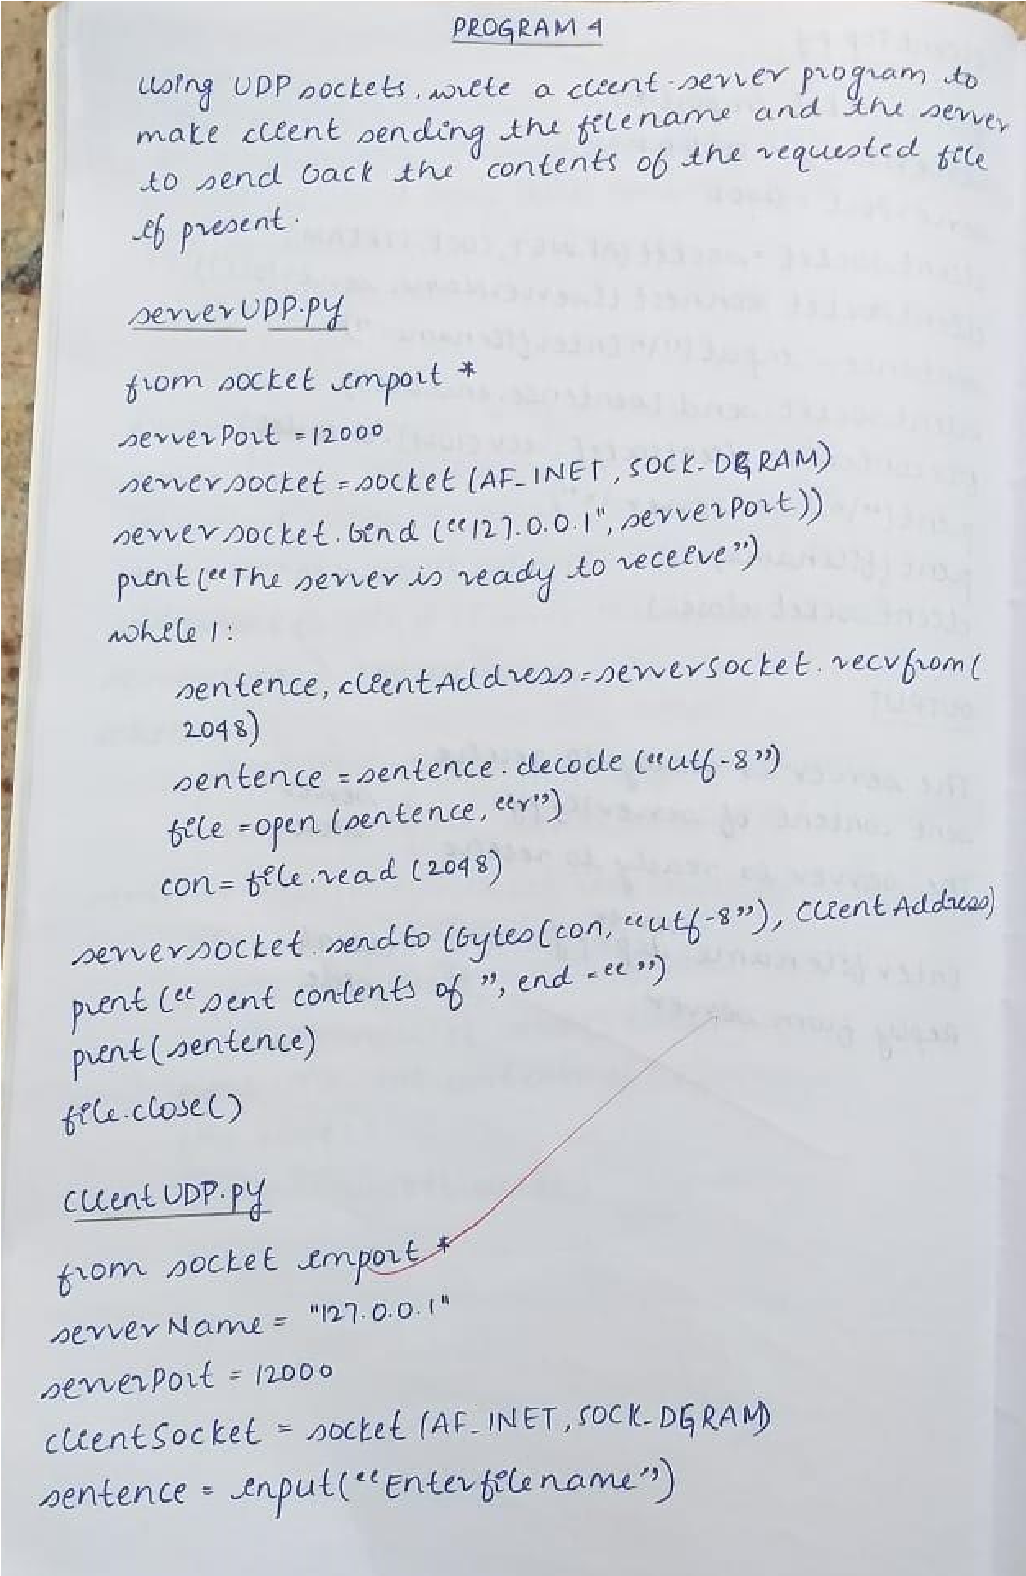 PROGRAM 4
Using UDP sockets, write a client-server program to
make client sending the filename and the server
to send back the contents of the requested file
if present.
serverUDP.py
from socket import *
serverPort = 12000
serversocket = socket (AF_INET, SOCK_DGRAM)
serversocket.bind (“127.0.0.1", serverPort))
print (“The server is ready to receive”)
while 1:
sentence, clientAddress = serverSocket.recvfrom(
2048)
sentence = sentence.decode (“utf-8”)
file = open (sentence, “r”)
con = file.read (2048)
serversocket.sendto (bytes(con, “utf-8”), clientAddress)
print (“sent contents of ”, end = “ ”)
print(sentence)
file.close()
clientUDP.py
from socket import *
serverName = "127.0.0.1"
serverPort = 12000
clientSocket = socket (AF_INET, SOCK_DGRAM)
sentence = input(“Enter file name”)